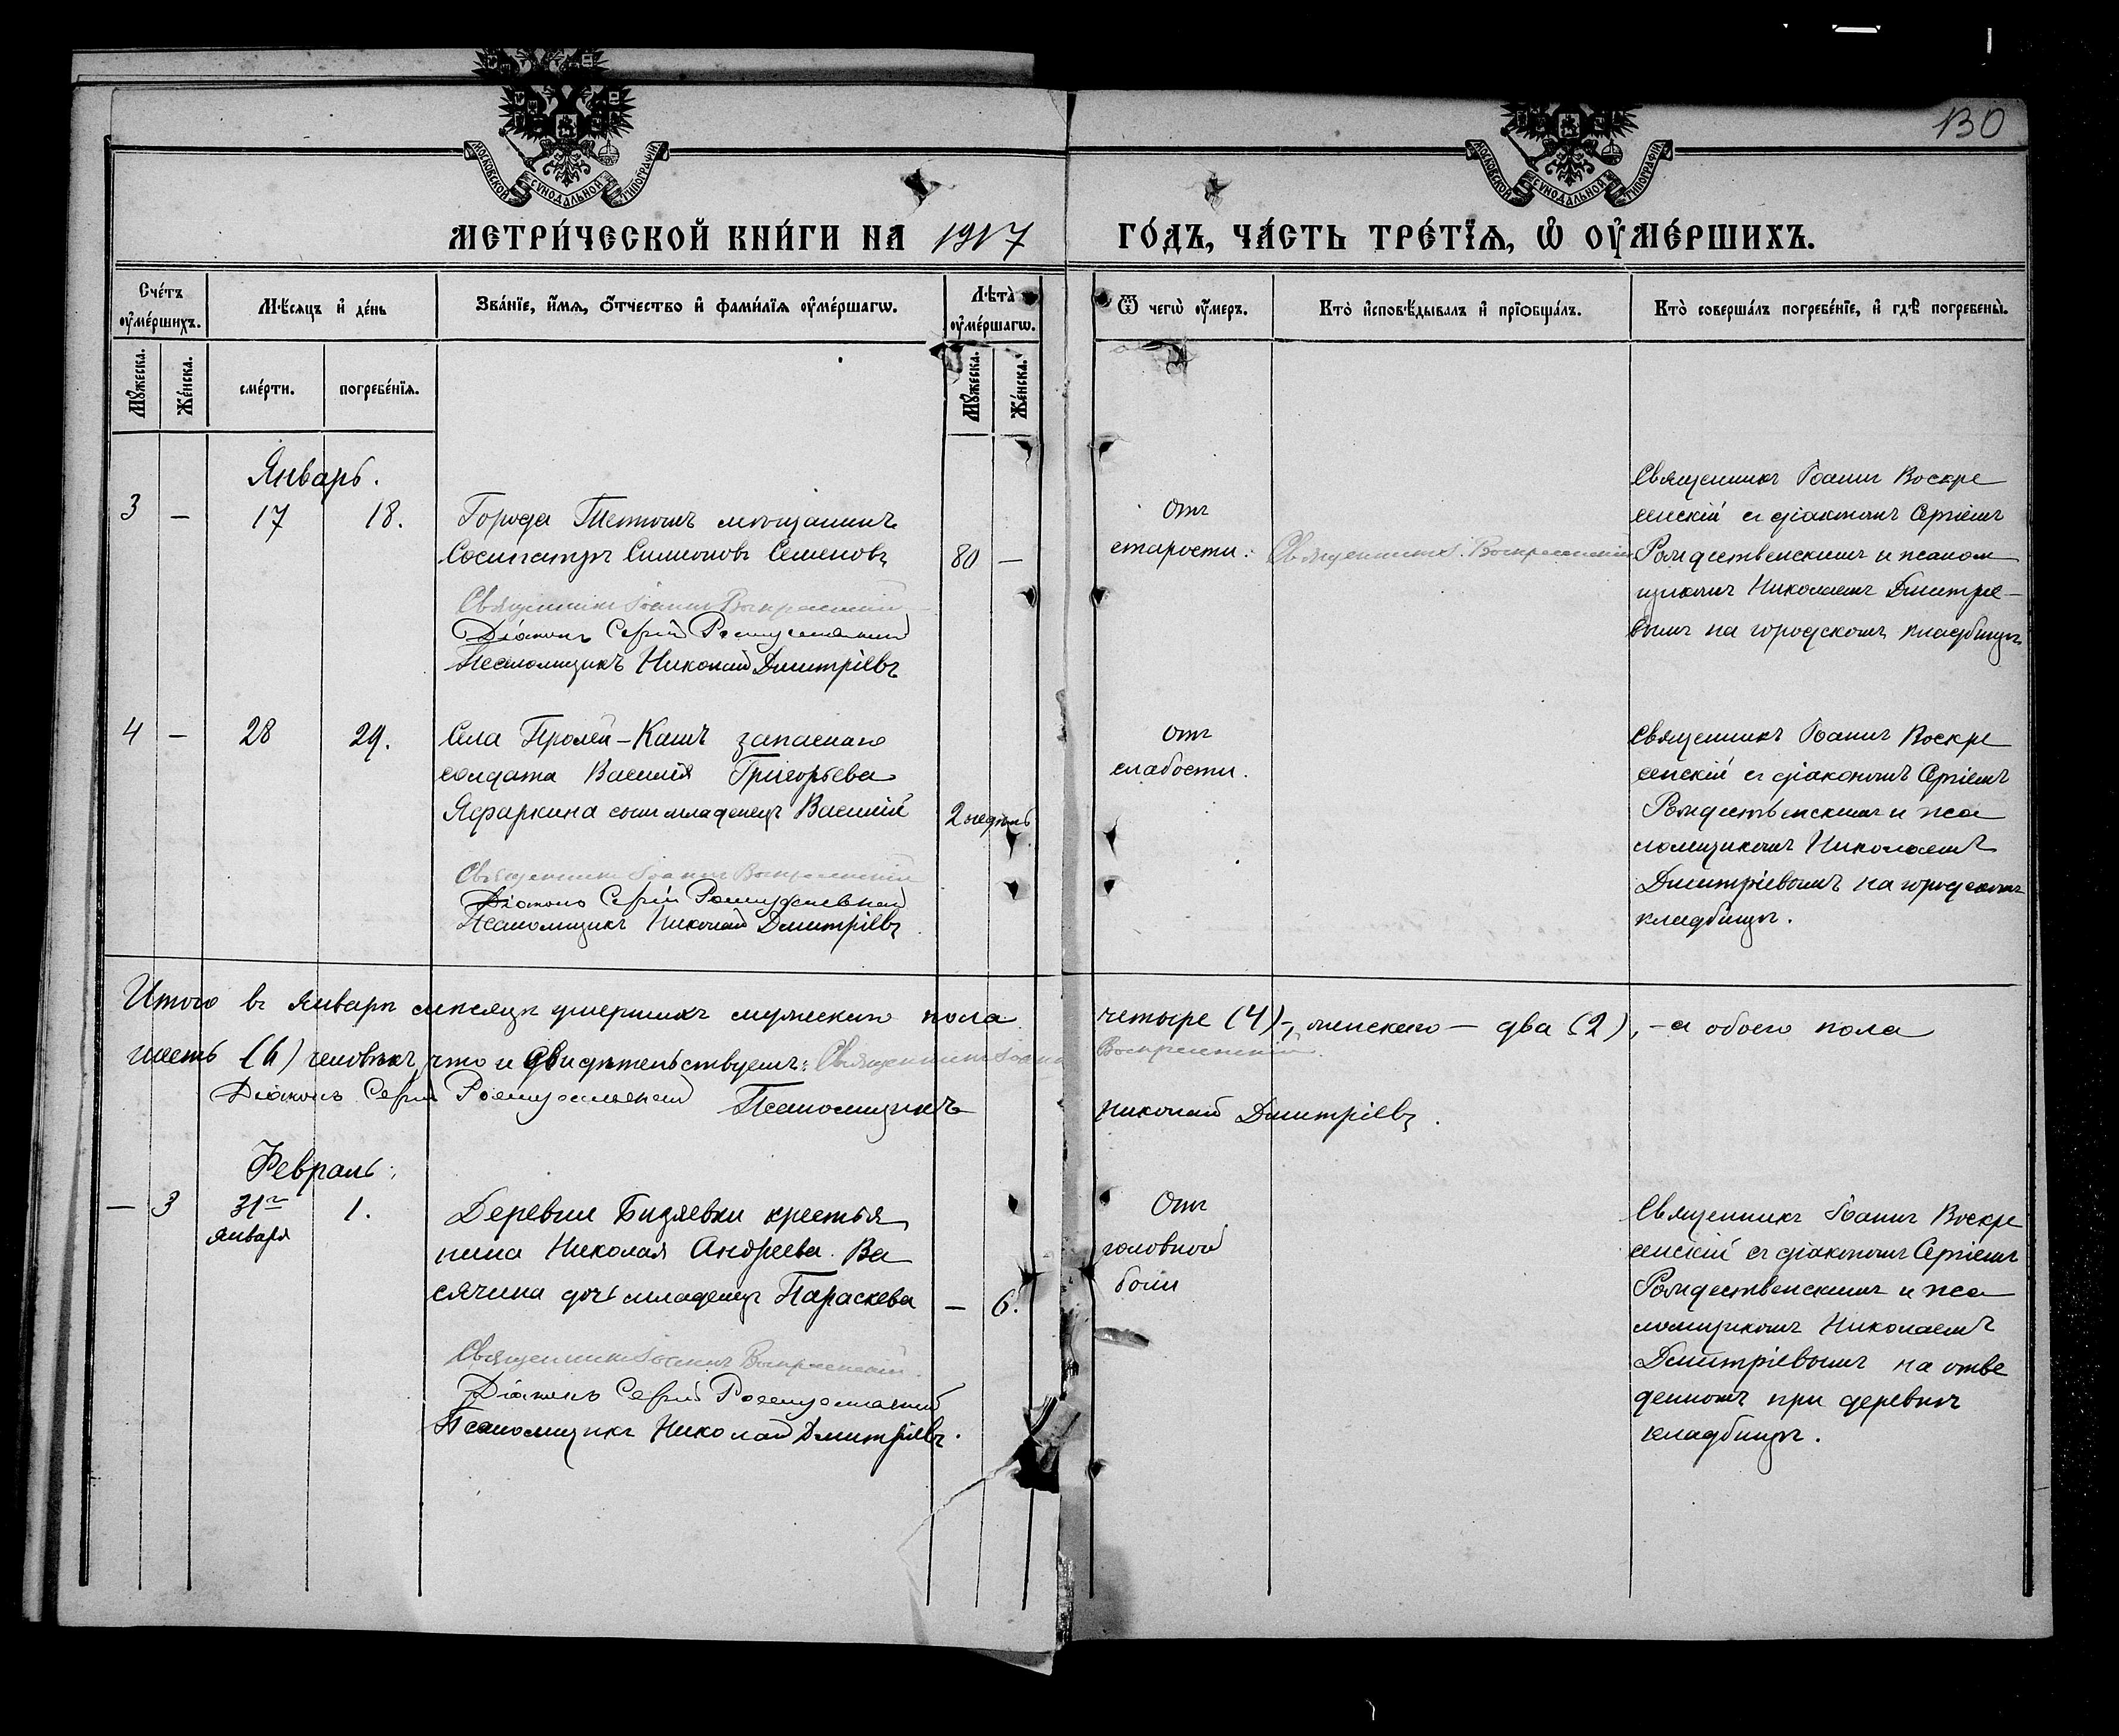 130
МОСКОВСКОЙ СѴНОДАЛЬНОЙ ТИПОГРАФІИ
МОСКОВСКОЙ СѴНОДАЛЬНОЙ ТИПОГРАФІИ
МЕТРИ́ЧЕСКОЙ КНИ́ГИ НА 1917 ГО́ДЪ, ЧА́СТЬ ТРЕ́ТЇѦ, Ѡ҆ ОУ҆МЕ́РШИХЪ.
Сче́тъ оу҆ме́ршихъ.
Мѣ́сѧцъ и҆ де́нь
Зва́нїе, и҆́мѧ, ѻ҆́тчество и҆ фами́лїѧ оу҆ме́ршагѡ.
Лѣ́та оу҆ме́ршагѡ.
Ѿ чегѡ̀ оу҆́меръ.
Кто̀ и҆сповѣ́дывалъ и҆ прїѻбща́лъ.
Кто̀ соверша́лъ погребе́нїе, и҆ гдѣ̀ погребены̀.
Мꙋ́жеска.
Же́нска.
сме́рти.
погребе́нїѧ.
Мꙋ́жеска.
Же́нска.
Январь.
3 — 17 18.
Города Тетюшъ мѣщанинъ
Сосипатръ Симоновъ Семеновъ
80 —
Священникъ Іоаннъ Воскресенскій
Діаконъ Сергій Рождественскій
Псаломщикъ Николай Дмитріевъ
Отъ
старости.
Священникъ І. Воскресенскій
Священникъ Іоаннъ Воскре
сенскій съ діакономъ Сергіемъ
Рождественскимъ и псалом
щикомъ Николаемъ Дмитріе-
вымъ на городскомъ кладбищѣ
4 — 28 29.
Села Пролей-Кашъ запаснаго
солдата Василія Григорьева
сынъ младенецъ Василій
2 недѣль
Священникъ Іоаннъ Воскресенскій
Діаконъ Сергій Рождественскій
Псаломщикъ Николай Дмитріевъ
Отъ
слабости.
Священникъ Іоаннъ Воскре
сенскій съ діакономъ Сергіемъ
Рождественскимъ и пса
ломщикомъ Николаемъ
Дмитріевымъ на городскомъ
кладбищѣ.
Итого въ январѣ мѣсяцѣ умершихъ мужескаго пола четыре (4)-, женскаго — два (2), - а обоего пола
шесть (6) человѣкъ, что и свидѣтельствуемъ: Священникъ Іоаннъ Воскресенскій.
Діаконъ Сергій Рождественскій Псаломщикъ Николай Дмитріевъ.
Февраль:
— 3 31го 1.
января
Деревни Бизяевки крестья
нина Николая Андреева Ва
сячина дочь младенецъ Параскева
— 6.
Священникъ Іоаннъ Воскресенскій.
Діаконъ Сергій Рождественскій
Псаломщикъ Николай Дмитріевъ.
Отъ
головной
боли
Священникъ Іоаннъ Воскре
сенскій съ діакономъ Сергіемъ
Рождественскимъ и пса
ломщикомъ Николаемъ
Дмитріевымъ на отве
денномъ при деревнѣ
кладбищѣ.